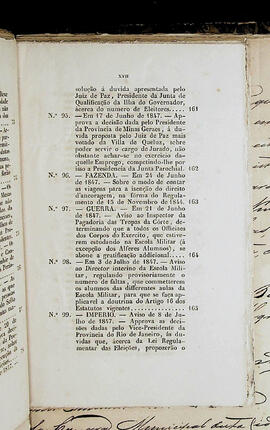 XVII
solução á duvida apresentada pelo
Juiz de Paz, Presidente da Junta de
Qualificação da Ilha do Governador,
ácerca do numero de Eleitores.... 161
N.º 95. — Em 17 de Junho de 1847. — Ap-
prova a decisão dada pelo Presidente
da Provincia de Minas Geraes, á du-
vida proposta pelo Juiz de Paz mais
votado da Villa de Queluz, sobre
poder servir o cargo de Jurado, não
obstante achar-se no exercicio da-
quelle Emprego, competindo-lhe por
isso a Presidencia da Junta Parochial. 162
N.º 96. — FAZENDA. — Em 21 de Junho
de 1847. — Sobre o modo de contar
as viagens para a isenção do direito
d'ancoragem, na fórma do Regula-
mento de 15 de Novembro de 1844. 163
N.º 97. — GUERRA. — Em 21 de Junho
de 1847. — Aviso ao Inspector da
Pagadoria das Tropas da Côrte, de-
terminando que a todos os Officiaes
dos Corpos do Exercito, que estive-
rem estudando na Escola Militar (á
excepção dos Alferes Alumnos), se
abone a gratificação addicional.... 164
N.º 98. — Em 3 de Julho de 1847. — Aviso
ao Director interino da Escola Mili-
tar, regulando provisoriamente o
numero de faltas, que commetterem
os alumnos das differentes aulas da
Escola Militar, para que se faça ap-
plicavel a doutrina do Artigo 16 dos
Estatutos vigentes............... 165
N.º 99. — IMPERIO. — Aviso de 8 de Ju-
lho de 1847. — Approva as deci-
sões dadas pelo Vice-Presidente da
Provincia do Rio de Janeiro, ás du-
vidas que, ácerca da Lei Regula-
mentar das Eleições, propozerão o